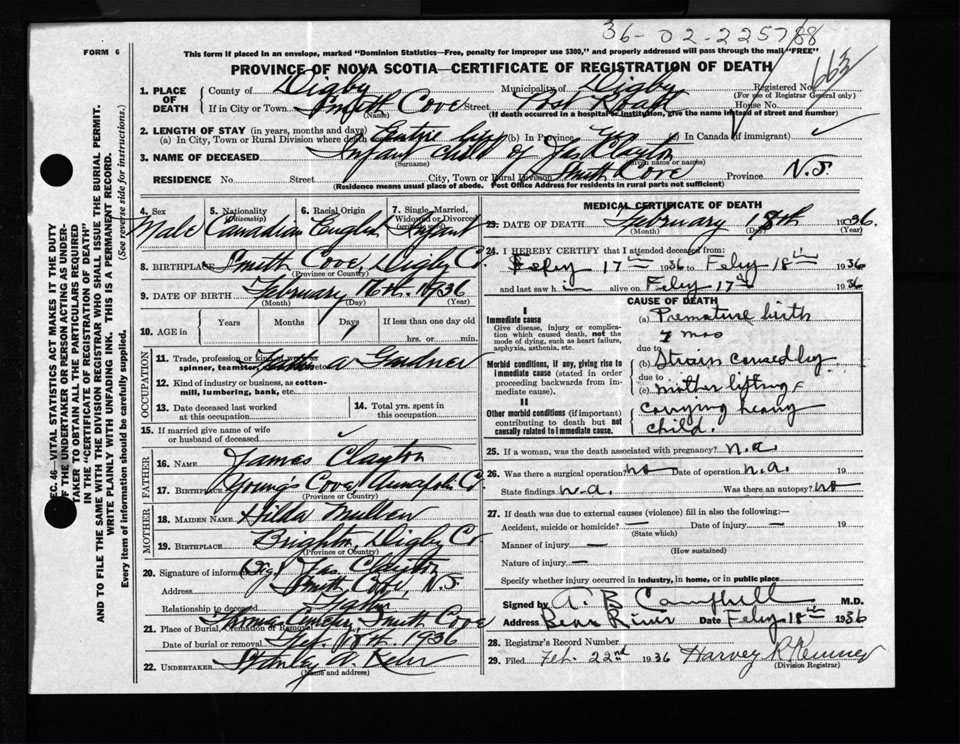 36-02-225788
FORM 6
This form if placed in an envelope, marked "Dominion Statistics—Free, penalty for improper use $300," and properly addressed will pass through the mail "FREE"
PROVINCE OF NOVA SCOTIA—CERTIFICATE OF REGISTRATION OF DEATH
Registered No. 663
(For use of Registrar General only)
1. PLACE OF DEATH
County of Digby Municipality of Digby
If in City or Town Smith Cove Street Post Road House No.
(Name) (If death occurred in a hospital or institution, give the name instead of street and number)
2. LENGTH OF STAY (in years, months and days)
(a) In City, Town or Rural Division where death occurred Entire life (b) In Province Yes (c) In Canada (if immigrant) ✓
3. NAME OF DECEASED Infant child of Jas Clayton
(Surname) (Given name or names)
RESIDENCE No. Street City, Town or Rural Division Smith Cove Province N.S.
(Residence means usual place of abode. Post Office Address for residents in rural parts not sufficient)
4. Sex Male
5. Nationality (Citizenship) Canadian
6. Racial Origin English
7. Single, Married, Widowed or Divorced (write the word) Infant
8. BIRTHPLACE Smith Cove, Digby Co.
(Province or Country)
9. DATE OF BIRTH February 16th. 1936
(Month) (Day) (Year)
10. AGE in Years Months Days If less than one day old
hrs. or min.
OCCUPATION
11. Trade, profession or kind of work as spinner, teamster, Father a Gardner
12. Kind of industry or business, as cotton-mill, lumbering, bank, etc.
13. Date deceased last worked at this occupation
14. Total yrs. spent in this occupation
15. If married give name of wife or husband of deceased ✓
FATHER
16. NAME James Clayton
17. BIRTHPLACE Youngs Cove, Annapolis Co.
(Province or Country)
MOTHER
18. MAIDEN NAME Hilda Mullen
19. BIRTHPLACE Brighton, Digby Co
(Province or Country)
20. Signature of informant (Sg.) Jas. Clayton
Address Smith Cove, N.S
Relationship to deceased Father
21. Place of Burial, Cremation or Removal Thomas Cemetery, Smith Cove
Date of burial or removal Feb. 18th. 1936
22. UNDERTAKER Stanley A.
(Name and address)
MEDICAL CERTIFICATE OF DEATH
23. DATE OF DEATH February 8th 1936.
(Month) (Day) (Year)
24. I HEREBY CERTIFY that I attended deceased from:
Feby 17th 1936 to Feby 18th 1936
and last saw h alive on Feby 17th 1936
CAUSE OF DEATH
I
Immediate cause
Give disease, injury or complication which caused death, not the mode of dying, such as heart failure, asphyxia, asthenia, etc.
(a) Premature birth
7 mos
due to
Morbid conditions, if any, giving rise to immediate cause (stated in order proceeding backwards from immediate cause).
(b) Strain caused by
due to
(c) mother lifting &
II
Other morbid conditions (if important) contributing to death but not causally related to immediate cause.
carrying heavy
child.
25. If a woman, was the death associated with pregnancy? n.a
26. Was there a surgical operation? no Date of operation n.a. 19
State findings n.a. Was there an autopsy? no
27. If death was due to external causes (violence) fill in also the following:—
Accident, suicide or homicide? — Date of injury — 19
(State which)
Manner of injury —
(How sustained)
Nature of injury —
Specify whether injury occurred in industry, in home, or in public place
Signed by A. B. Campbell M.D.
Address Bear River Date Feby 18th 1936
28. Registrar's Record Number
29. Filed Feb. 22nd 1936 Harvey R
(Division Registrar)
SEC. 46—VITAL STATISTICS ACT MAKES IT THE DUTY
OF THE UNDERTAKER OR PERSON ACTING AS UNDER-
TAKER TO OBTAIN ALL THE PARTICULARS REQUIRED
IN THE "CERTIFICATE OF REGISTRATION OF DEATH"
AND TO FILE THE SAME WITH THE DIVISION REGISTRAR WHO SHALL ISSUE THE BURIAL PERMIT.
WRITE PLAINLY WITH UNFADING INK. THIS IS A PERMANENT RECORD.
Every item of information should be carefully supplied. (See reverse side for instructions.)